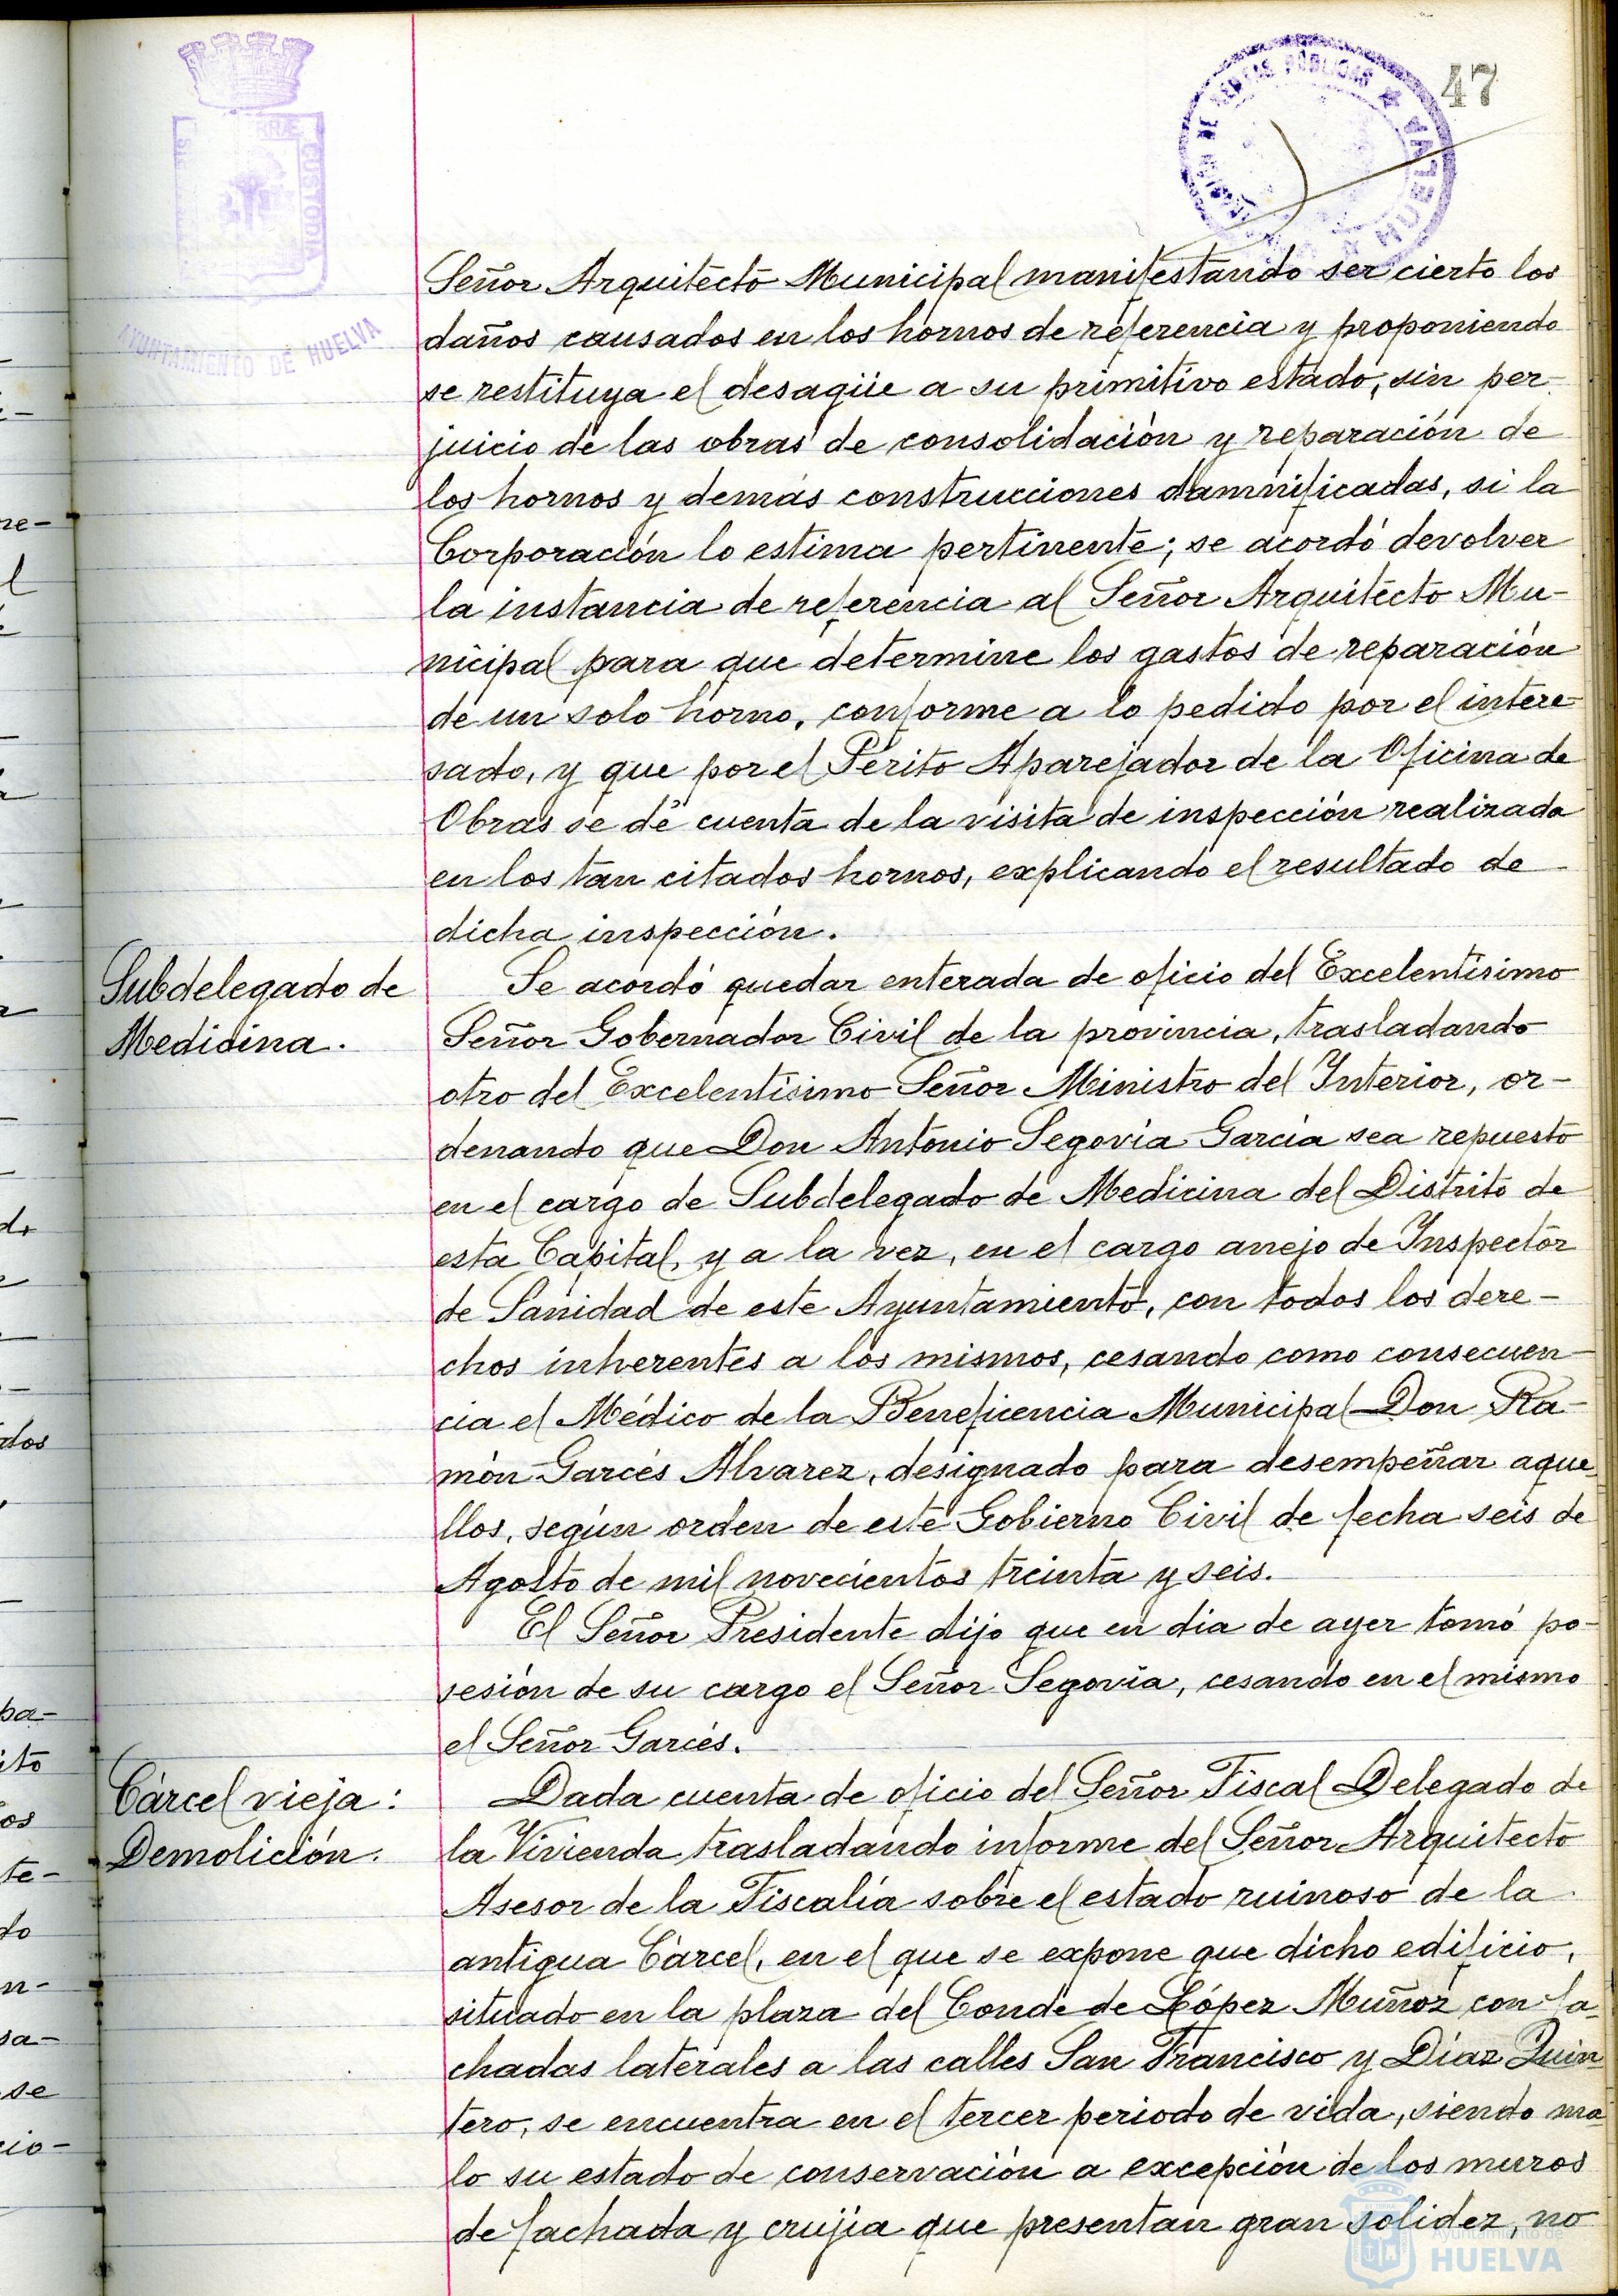 47
AYUNTAMIENTO DE HUELVA
CUSTODIA
HUELVA
Señor Arquitecto Municipal manifestando ser cierto los
daños causados en los hornos de referencia y proponiendo
se restituya el desagüe a su primitivo estado, sin per-
juicio de las obras de consolidación y reparación de
los hornos y demás construcciones damnificadas, si la
Corporación lo estima pertinente; se acordó devolver
la instancia de referencia al Señor Arquitecto Mu-
nicipal para que determine los gastos de reparación
de un solo horno, conforme a lo pedido por el intere-
sado, y que por el Perito Aparejador de la Oficina de
Obras se dé cuenta de la visita de inspección realizada
en los tan citados hornos, explicando el resultado de
dicha inspección.
Subdelegado de
Medicina.
Se acordó quedar enterada de oficio del Excelentísimo
Señor Gobernador Civil de la provincia, trasladando
otro del Excelentísimo Señor Ministro del Interior, or-
denando que Don Antonio Segovia García sea repuesto
en el cargo de Subdelegado de Medicina del Distrito de
esta Capital, y a la vez, en el cargo anejo de Inspector
de Sanidad de este Ayuntamiento, con todos los dere-
chos inherentes a los mismos, cesando como consecuen-
cia el Médico de la Beneficencia Municipal Don Ra-
món Garcés Alvarez, designado para desempeñar aque-
llos, según orden de este Gobierno Civil de fecha seis de
Agosto de mil novecientos treinta y seis.
El Señor Presidente dijo que en dia de ayer tomó po-
sesión de su cargo el Señor Segovia, cesando en el mismo
el Señor Garcés.
Cárcel vieja:
Demolición.
Dada cuenta de oficio del Señor Fiscal Delegado de
la Vivienda trasladando informe del Señor Arquitecto
Asesor de la Fiscalía sobre el estado ruinoso de la
antigua Cárcel, en el que se expone que dicho edificio,
situado en la plaza del Conde de López Muñoz con fa-
chadas laterales a las calles San Francisco y Díaz Quin
tero, se encuentra en el tercer periodo de vida, siendo ma
lo su estado de conservación a excepción de los muros
de fachada y crujía que presentan gran solidez, no
Ayuntamiento de
HUELVA